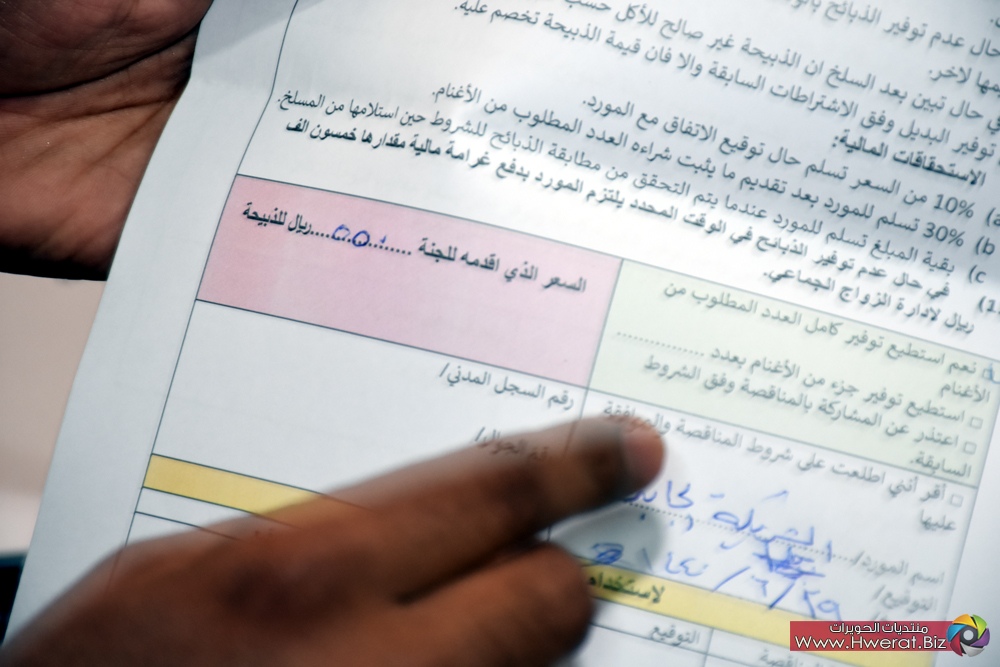 حال عدم توفير الذبائح
للأكل حسب
مها لاخر.
في حال تبين بعد السلخ ان الذبيحة غير صالح
توفير البديل وفق الاشتراطات السابقة والا فان قيمة الذبيحة تخصم عليه.
الاستحقاقات المالية:
10% من السعر تسلم حال توقيع الاتفاق مع المورد.
b) 30% تسلم للمورد بعد تقديم ما يثبت شراءه العدد المطلوب من الأغنام.
c) بقية المبلغ تسلم للمورد عندما يتم التحقق من مطابقة الذبائح للشروط حين استلامها من المسلخ.
في حال عدم توفير الذبائح في الوقت المحدد يلتزم المورد بدفع غرامة مالية مقدارها خمسون الف
ريال لإدارة الزواج الجماعي.
نعم استطيع توفير كامل العدد المطلوب من
الأغنام
استطيع توفير جزء من الأغنام بعدد ................
اعتذر عن المشاركة بالمناقصة وفق الشروط
السابقة.
السعر الذي اقدمه للجنة ........ ريال للذبيحة
أقر أنني اطلعت على شروط المناقصة والموافقة
عليها
رقم السجل المدني/
رقم الجوال/
اسم المورد/
التوقيع/
لاستخدام
التوقيع
منتديات الحويرات
Www.Hwerat.Biz